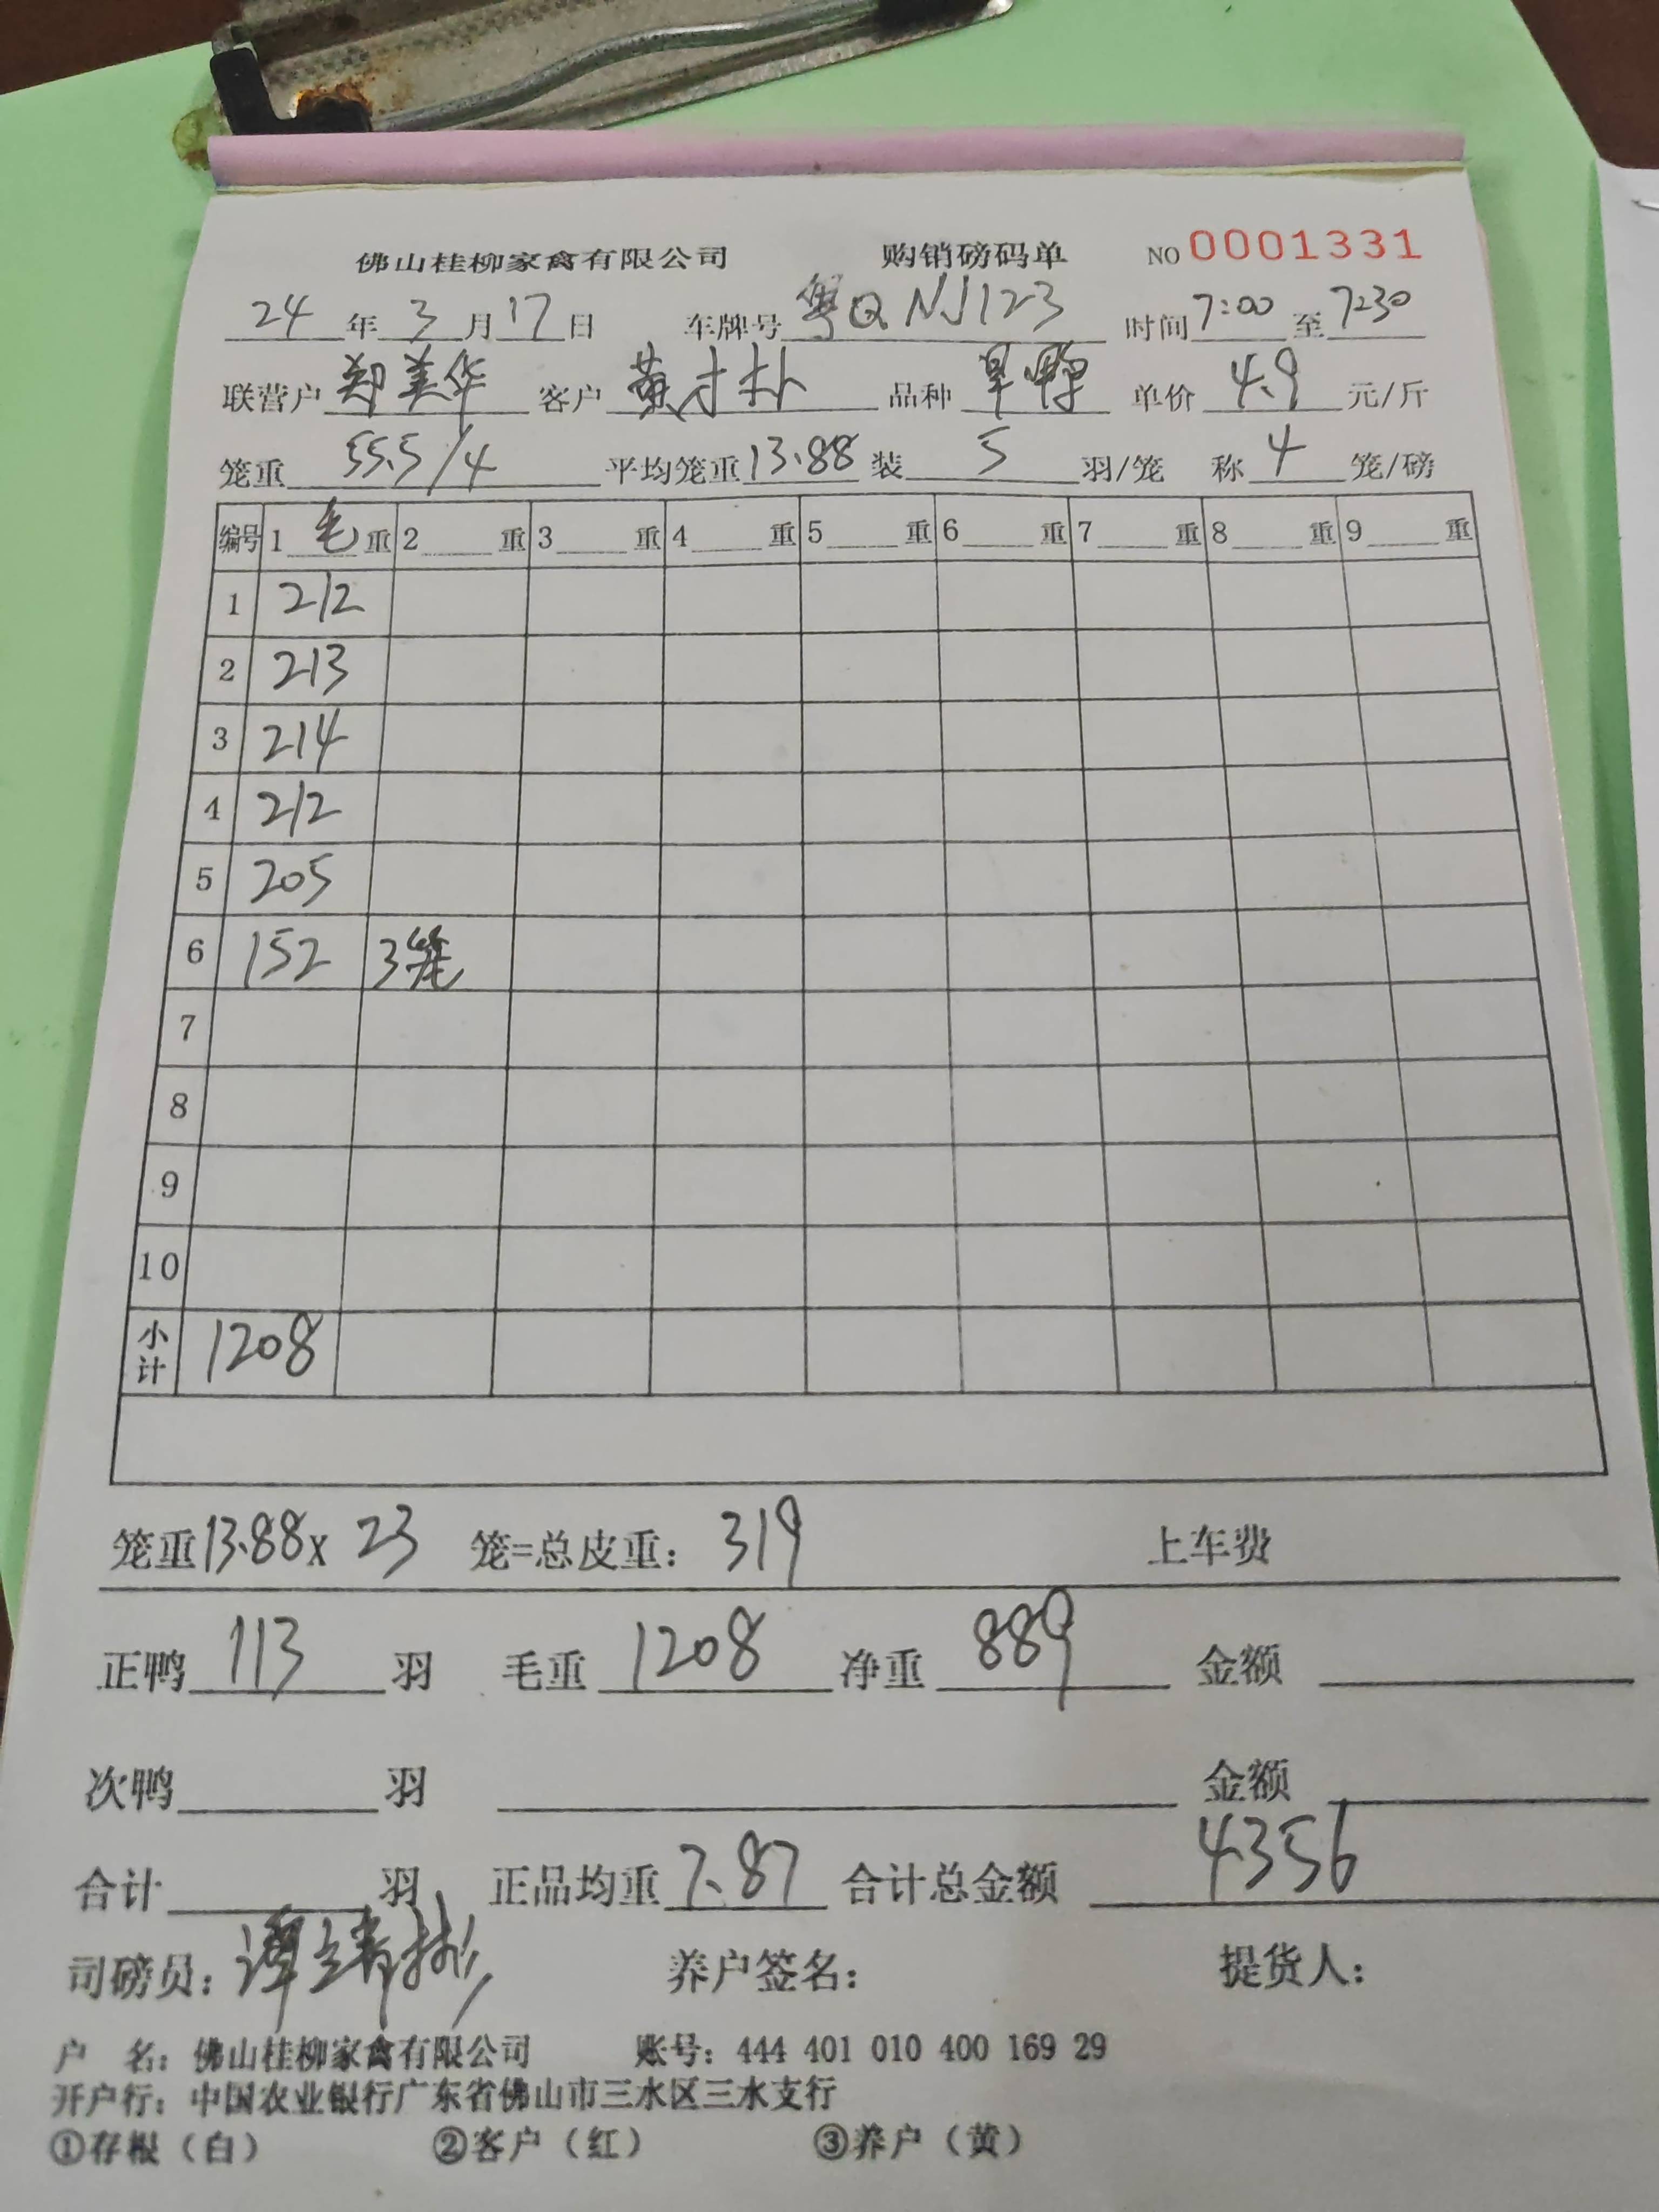 佛山桂柳家禽有限公司 购销磅码单 NO 0001331
24 年 3 月 17 日 车牌号 粤Q NJ123 时间 7:00 至 7:30
联营户 郑美华 客户 黄才朴 品种 旱鸭 单价 4.9 元/斤
笼重 55.5/4 平均笼重 13.88 装 5 羽/笼 称 4 笼/磅
编号 1 毛 重 2 重 3 重 4 重 5 重 6 重 7 重 8 重 9 重
1 212
2 213
3 214
4 212
5 205
6 152 3笼
7
8
9
10
小计 1208
笼重 13.88 x 23 笼=总皮重: 319 上车费
正鸭 113 羽 毛重 1208 净重 889 金额
次鸭 羽 金额
合计 羽 正品均重 7.87 合计总金额 4356
司磅员: 谭 养户签名: 提货人:
户 名: 佛山桂柳家禽有限公司 账号: 444 401 010 400 169 29
开户行: 中国农业银行广东省佛山市三水区三水支行
①存根（白） ②客户（红） ③养户（黄）